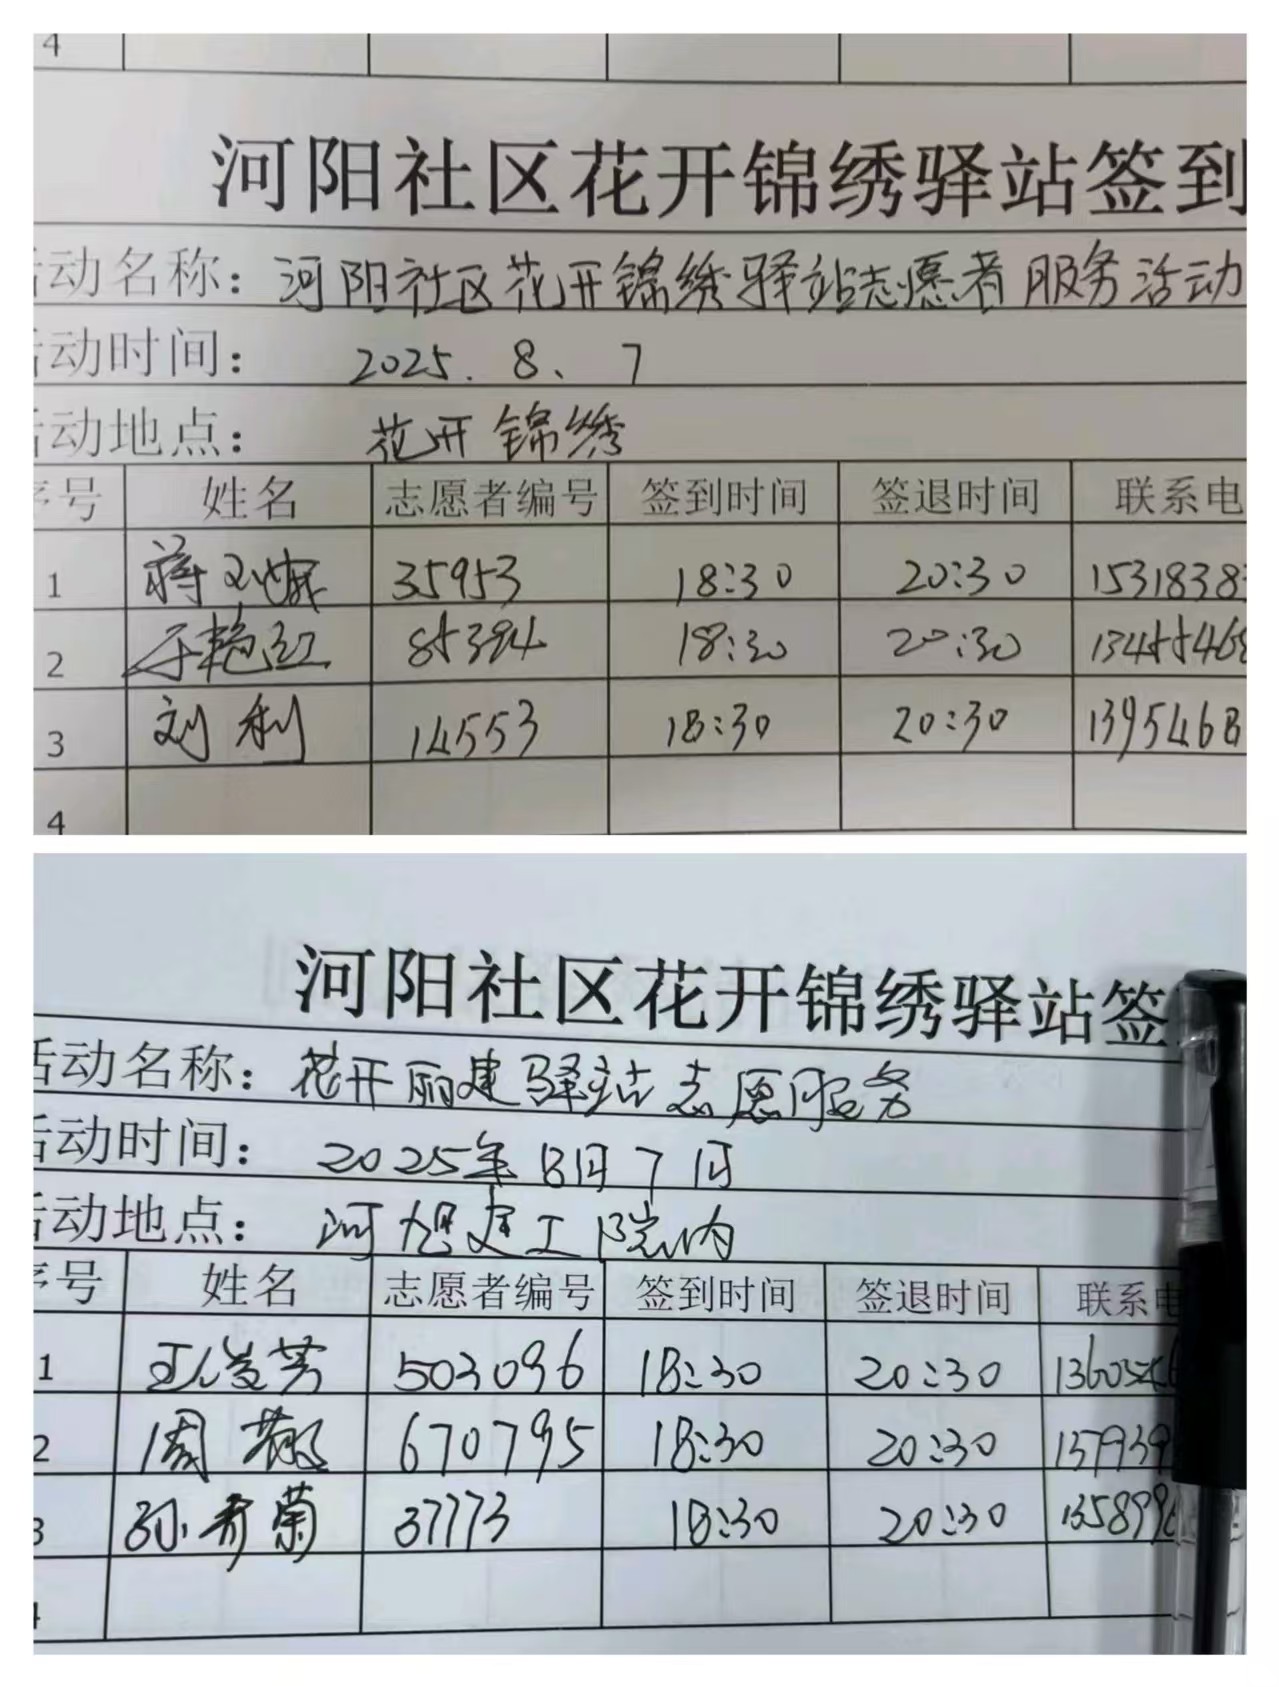 4
河阳社区花开锦绣驿站签到
活动名称：河阳社区花开锦绣驿站志愿者服务活动
活动时间： 2025.8、7
活动地点： 花开锦绣
序号 姓名 志愿者编号 签到时间 签退时间 联系电
1 蒋 35953 18:30 20:30 1531838
2 于艳红 85394 18:30 20:30 13455468
3 刘利 14553 18:30 20:30 1395468
4
河阳社区花开锦绣驿站签
活动名称：花开丽建驿站志愿服务
活动时间： 2025年8月7日
活动地点： 河建工院内
序号 姓名 志愿者编号 签到时间 签退时间 联系电
1 王俊芳 503096 18:30 20:30 13605
2 周 670795 18:30 20:30 157939
3 孙秀菊 37773 18:30 20:30 1358996
4